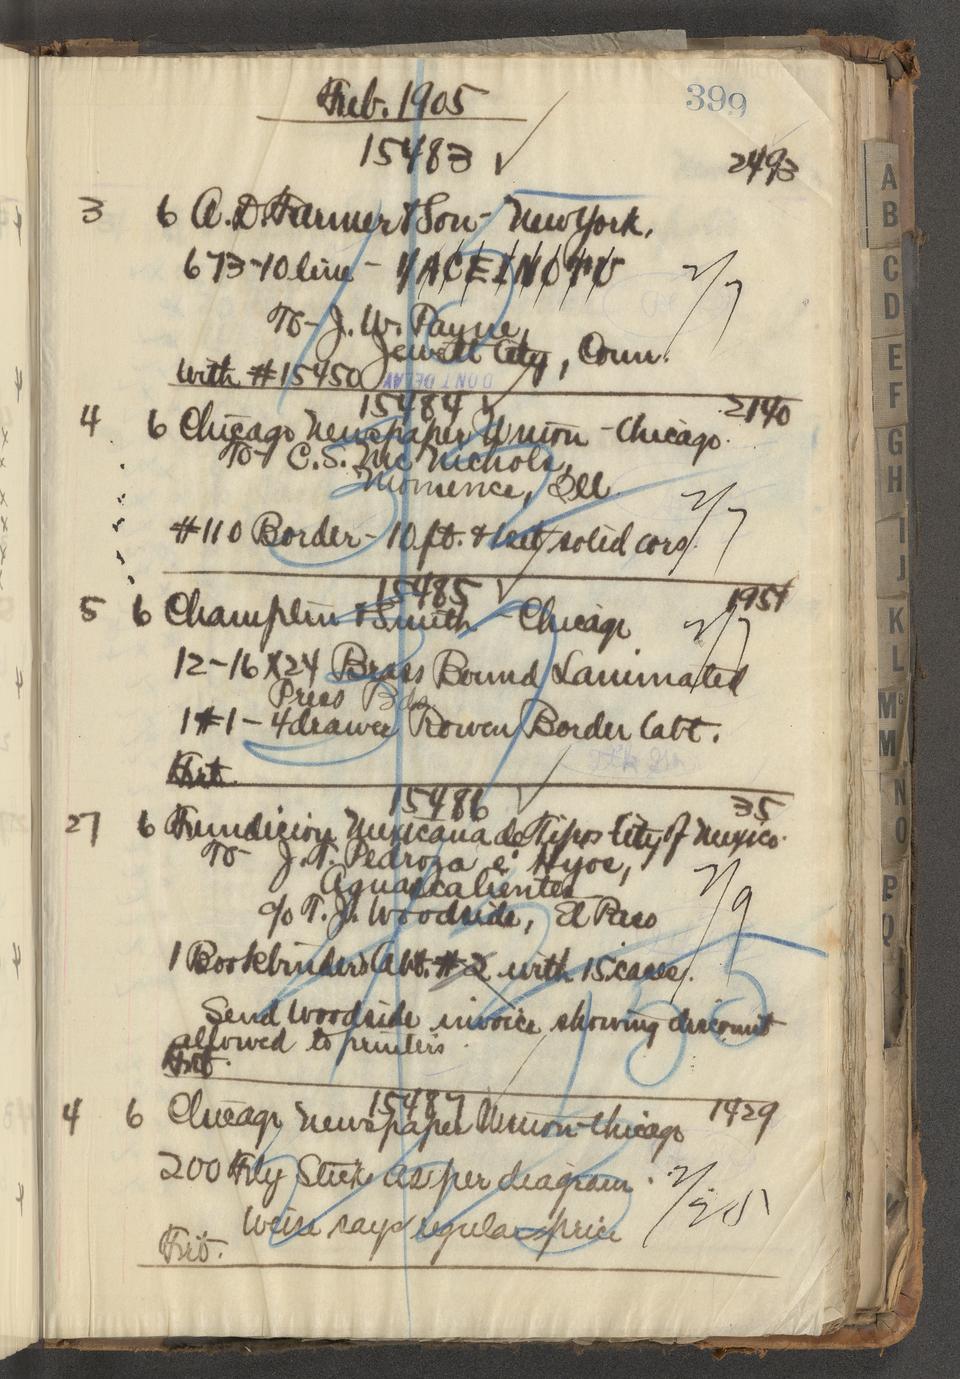 Feb. 1905
399
15483
2493
3 6 A. D. Farmer & Son - New York,
6 73-10 line - 1/ACEINOTU
2/7
To - J. W. Payne,
Jewett City, Conn.
With #15450
DON'T DELAY
15484
2140
4 6 Chicago Newspaper Union - Chicago.
To - C.S. Mc Nichols,
Momence, Ill.
2/7
#110 Border - 10 ft. & 1 set solid cors.
15485
1951
5 6 Champlin & Smith - Chicago
2/7
12-16x24 Brass Bound Laminated
Press Bds
1 #1 - 4 drawer Rowen Border Cabt.
Frt.
15486
35
27 6 Fundicion Mexicana de Tipos City of Mexico.
To J. T. Pedroza e' Hijos,
Aguascalientes
2/9
c/o T. J. Woodside, El Paso
1 Bookbinders Cabt. #2 with 15 cases.
Send Woodside invoice showing discount
allowed to printers.
Frt.
15487
1429
4 6 Chicago Newspaper Union - Chicago
200 Fly Sticks as per diagram.
2/25
Weise says regular price
Frt.
A
B
C
D
E
F
G
H
I
J
K
L
Mc
M
N
O
P
Q